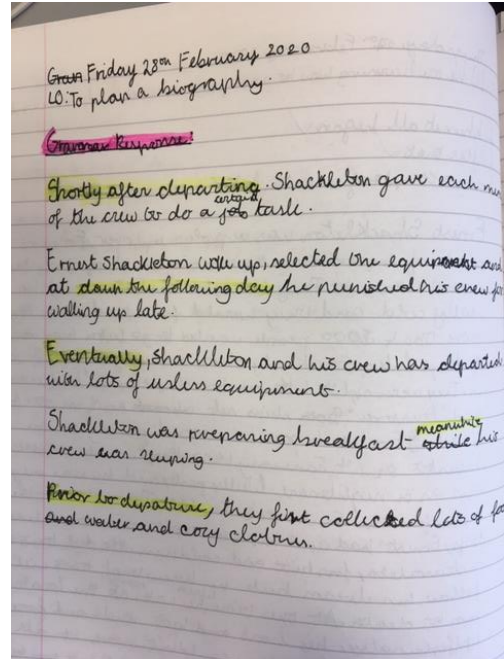 Gram Friday 28th February 2020
LO: To plan a biography.
Grammar Response!
Shortly after departing. Shackleton gave each
of the crew to do a certain job task.
Ernest Shackleton woke up, selected the equipment and
at dawn the following day he punished his crew for
walling up late.
Eventually, Shackleton and his crew has departed
with lots of usless equipments.
Shackleton was preparing breakfast meanwhile while his
crew was sleeping.
Prior to departure, they first collected lots of
and water and cozy clothes.